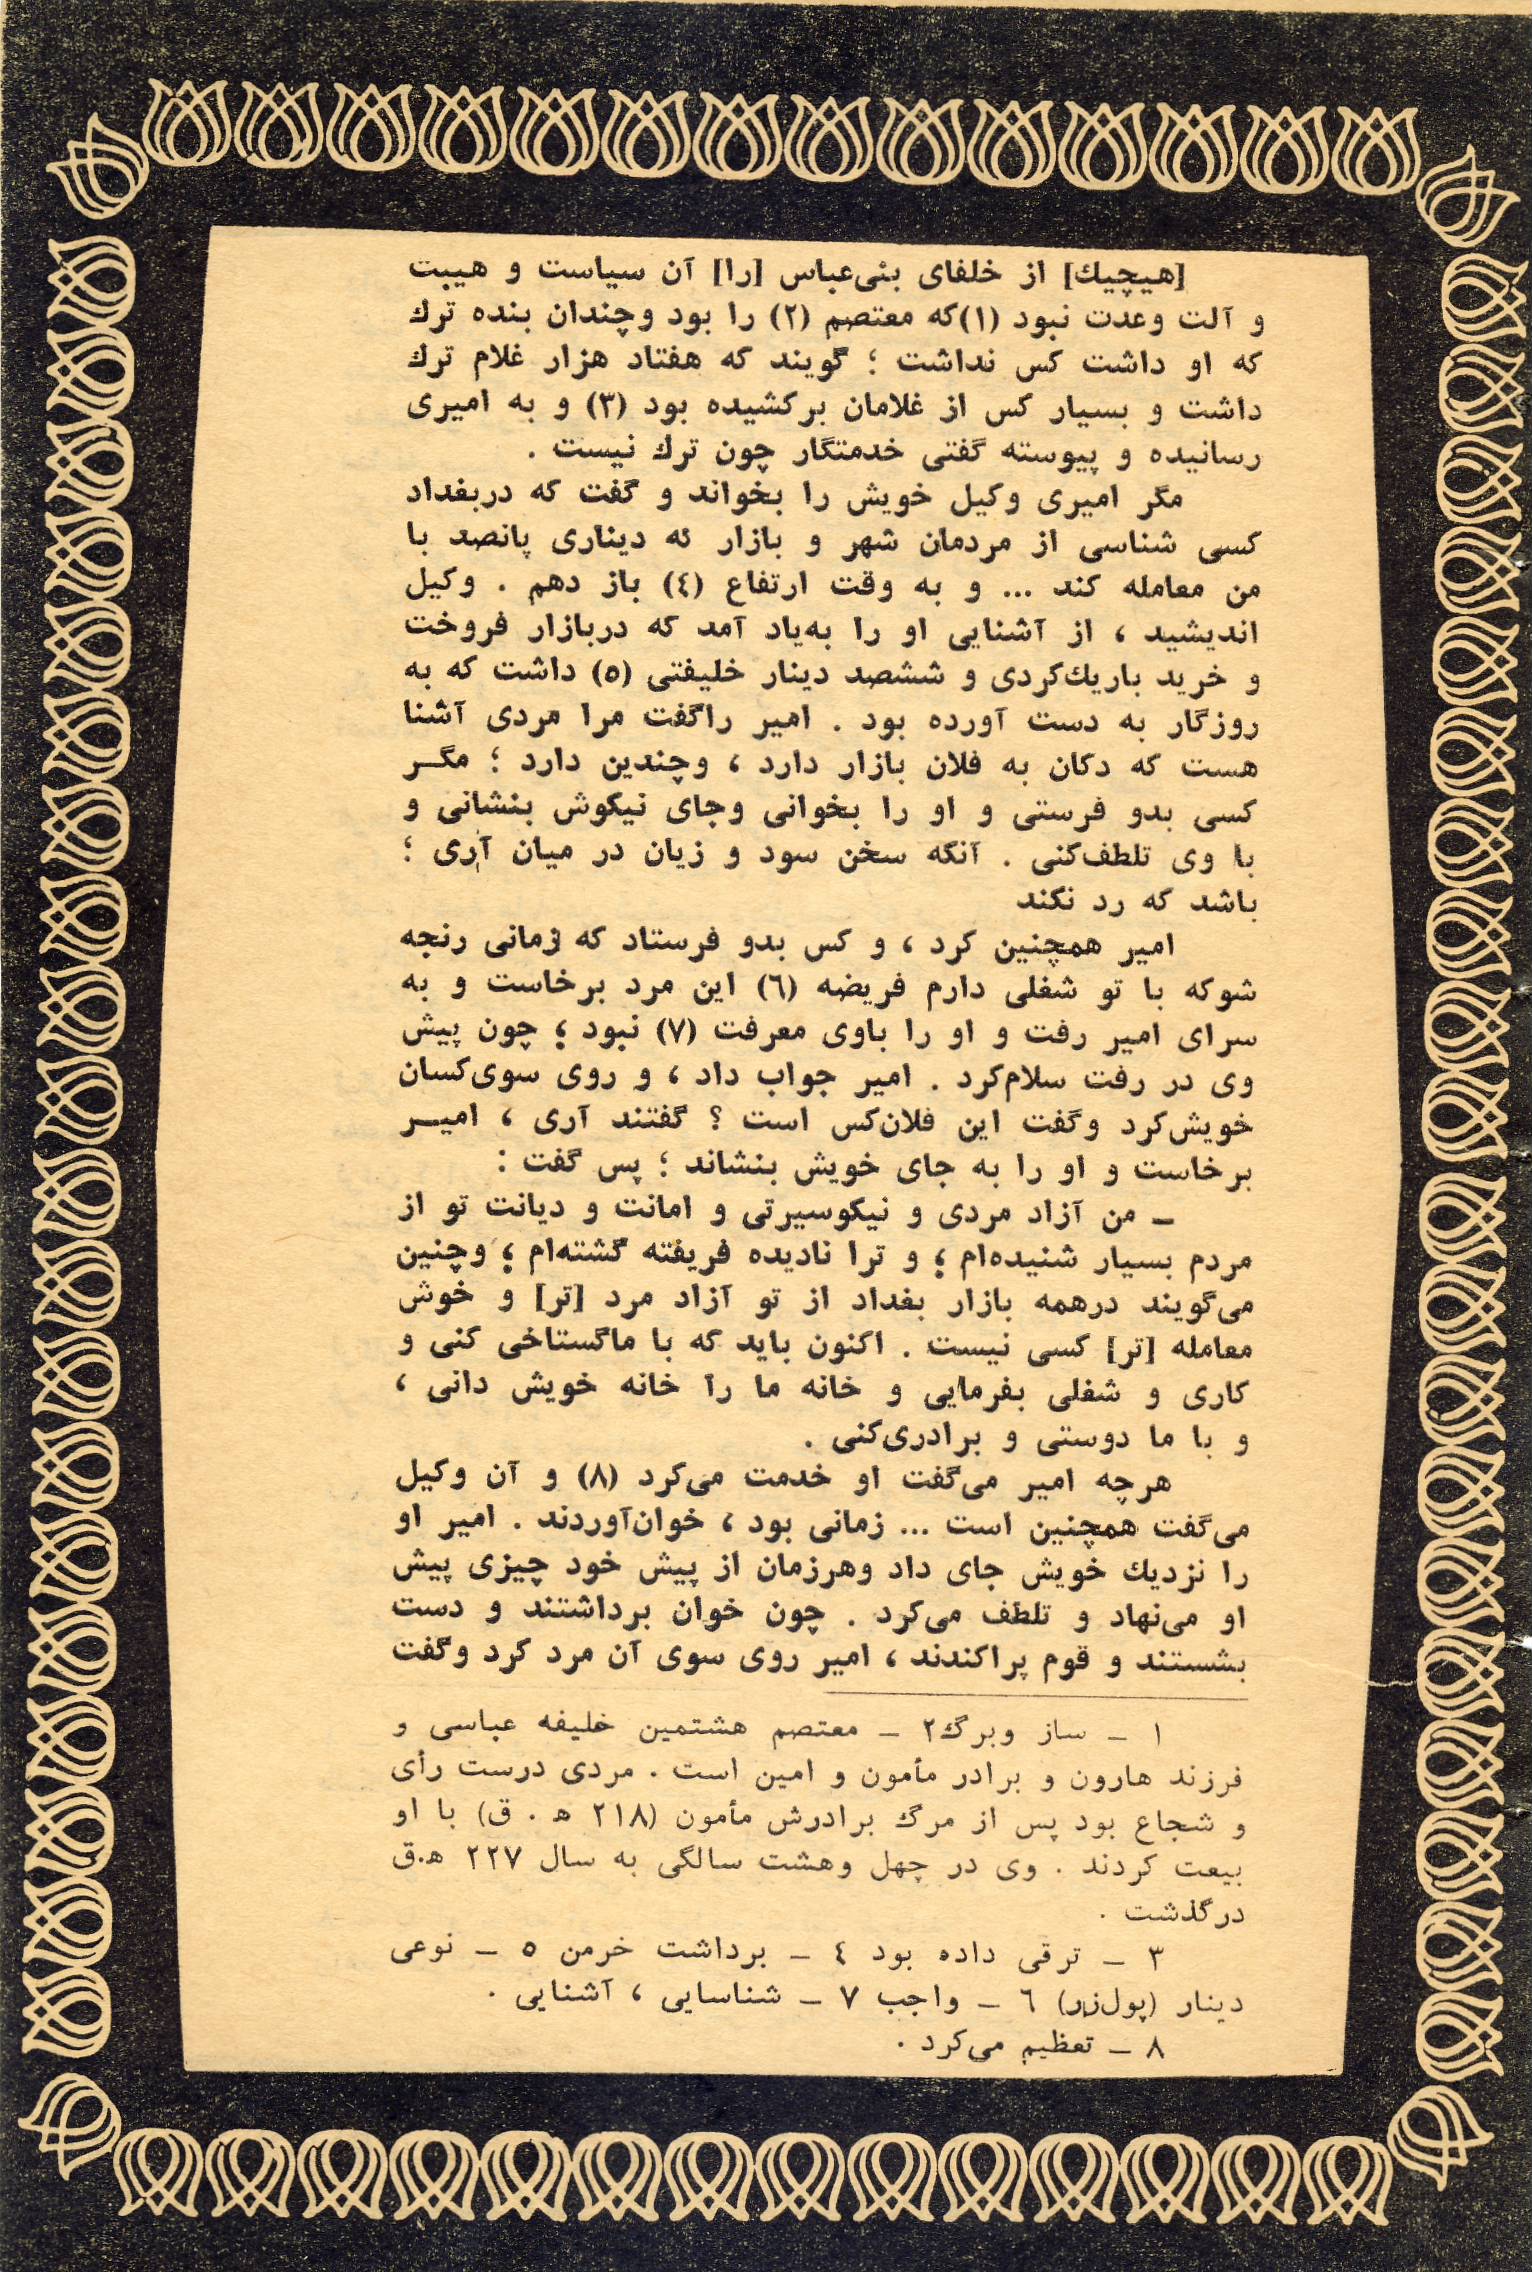 [هیچیك] از خلفای بنی‌عباس [را] آن سیاست و هیبت
و آلت وعدت نبود (۱)که معتصم (۲) را بود وچندان بنده ترك
که او داشت کس نداشت ؛ گویند که هفتاد هزار غلام ترك
داشت و بسیار کس از غلامان برکشیده بود (۳) و به امیری
رسانیده و پیوسته گفتی خدمتگار چون ترك نیست .
مگر امیری وکیل خویش را بخواند و گفت که دربغداد
کسی شناسی از مردمان شهر و بازار که دیناری پانصد با
من معامله کند ... و به وقت ارتفاع (٤) باز دهم . وکیل
اندیشید ، از آشنایی او را به‌یاد آمد که دربازار فروخت
و خرید باریك‌کردی و ششصد دینار خلیفتی (٥) داشت که به
روزگار به دست آورده بود . امیر راگفت مرا مردی آشنا
هست که دکان به فلان بازار دارد ، وچندین دارد ؛ مگـر
کسی بدو فرستی و او را بخوانی وجای نیکوش بنشانی و
با وی تلطف‌کنی . آنگه سخن سود و زیان در میان آری ؛
باشد که رد نکند
امیر همچنین کرد ، و کس بدو فرستاد که زمانی رنجه
شوکه با تو شغلی دارم فریضه (٦) این مرد برخاست و به
سرای امیر رفت و او را باوی معرفت (۷) نبود ؛ چون پیش
وی در رفت سلام‌کرد . امیر جواب داد ، و روی سوی‌کسان
خویش‌کرد وگفت این فلان‌کس است ؟ گفتند آری ، امیـر
برخاست و او را به جای خویش بنشاند ؛ پس گفت :
ـ من آزاد مردی و نیکوسیرتی و امانت و دیانت تو از
مردم بسیار شنیده‌ام ؛ و ترا نادیده فریفته گشته‌ام ؛ وچنین
می‌گویند درهمه بازار بغداد از تو آزاد مرد [تر] و خوش
معامله [تر] کسی نیست . اکنون باید که با ماگستاخی کنی و
کاری و شغلی بفرمایی و خانه ما را خانه خویش دانی ،
و با ما دوستی و برادری‌کنی .
هرچه امیر می‌گفت او خدمت می‌کرد (۸) و آن وکیل
می‌گفت همچنین است ... زمانی بود ، خوان‌آوردند . امیر او
را نزدیك خویش جای داد وهرزمان از پیش خود چیزی پیش
او می‌نهاد و تلطف می‌کرد . چون خوان برداشتند و دست
بشستند و قوم پراکندند ، امیر روی سوی آن مرد کرد وگفت
۱ ـ ساز وبرگ۲ ـ معتصم هشتمین خلیفه عباسی و
فرزند هارون و برادر مأمون و امین است . مردی درست رأی
و شجاع بود پس از مرگ برادرش مأمون (۲۱۸ ه . ق) با او
بیعت کردند . وی در چهل وهشت سالگی به سال ۲۲۷ ه.ق
درگذشت .
۳ ـ ترقی داده بود ٤ ـ برداشت خرمن ٥ ـ نوعی
دینار (پول‌زر) ٦ ـ واجب ۷ ـ شناسایی ، آشنایی .
۸ ـ تعظیم می‌کرد .